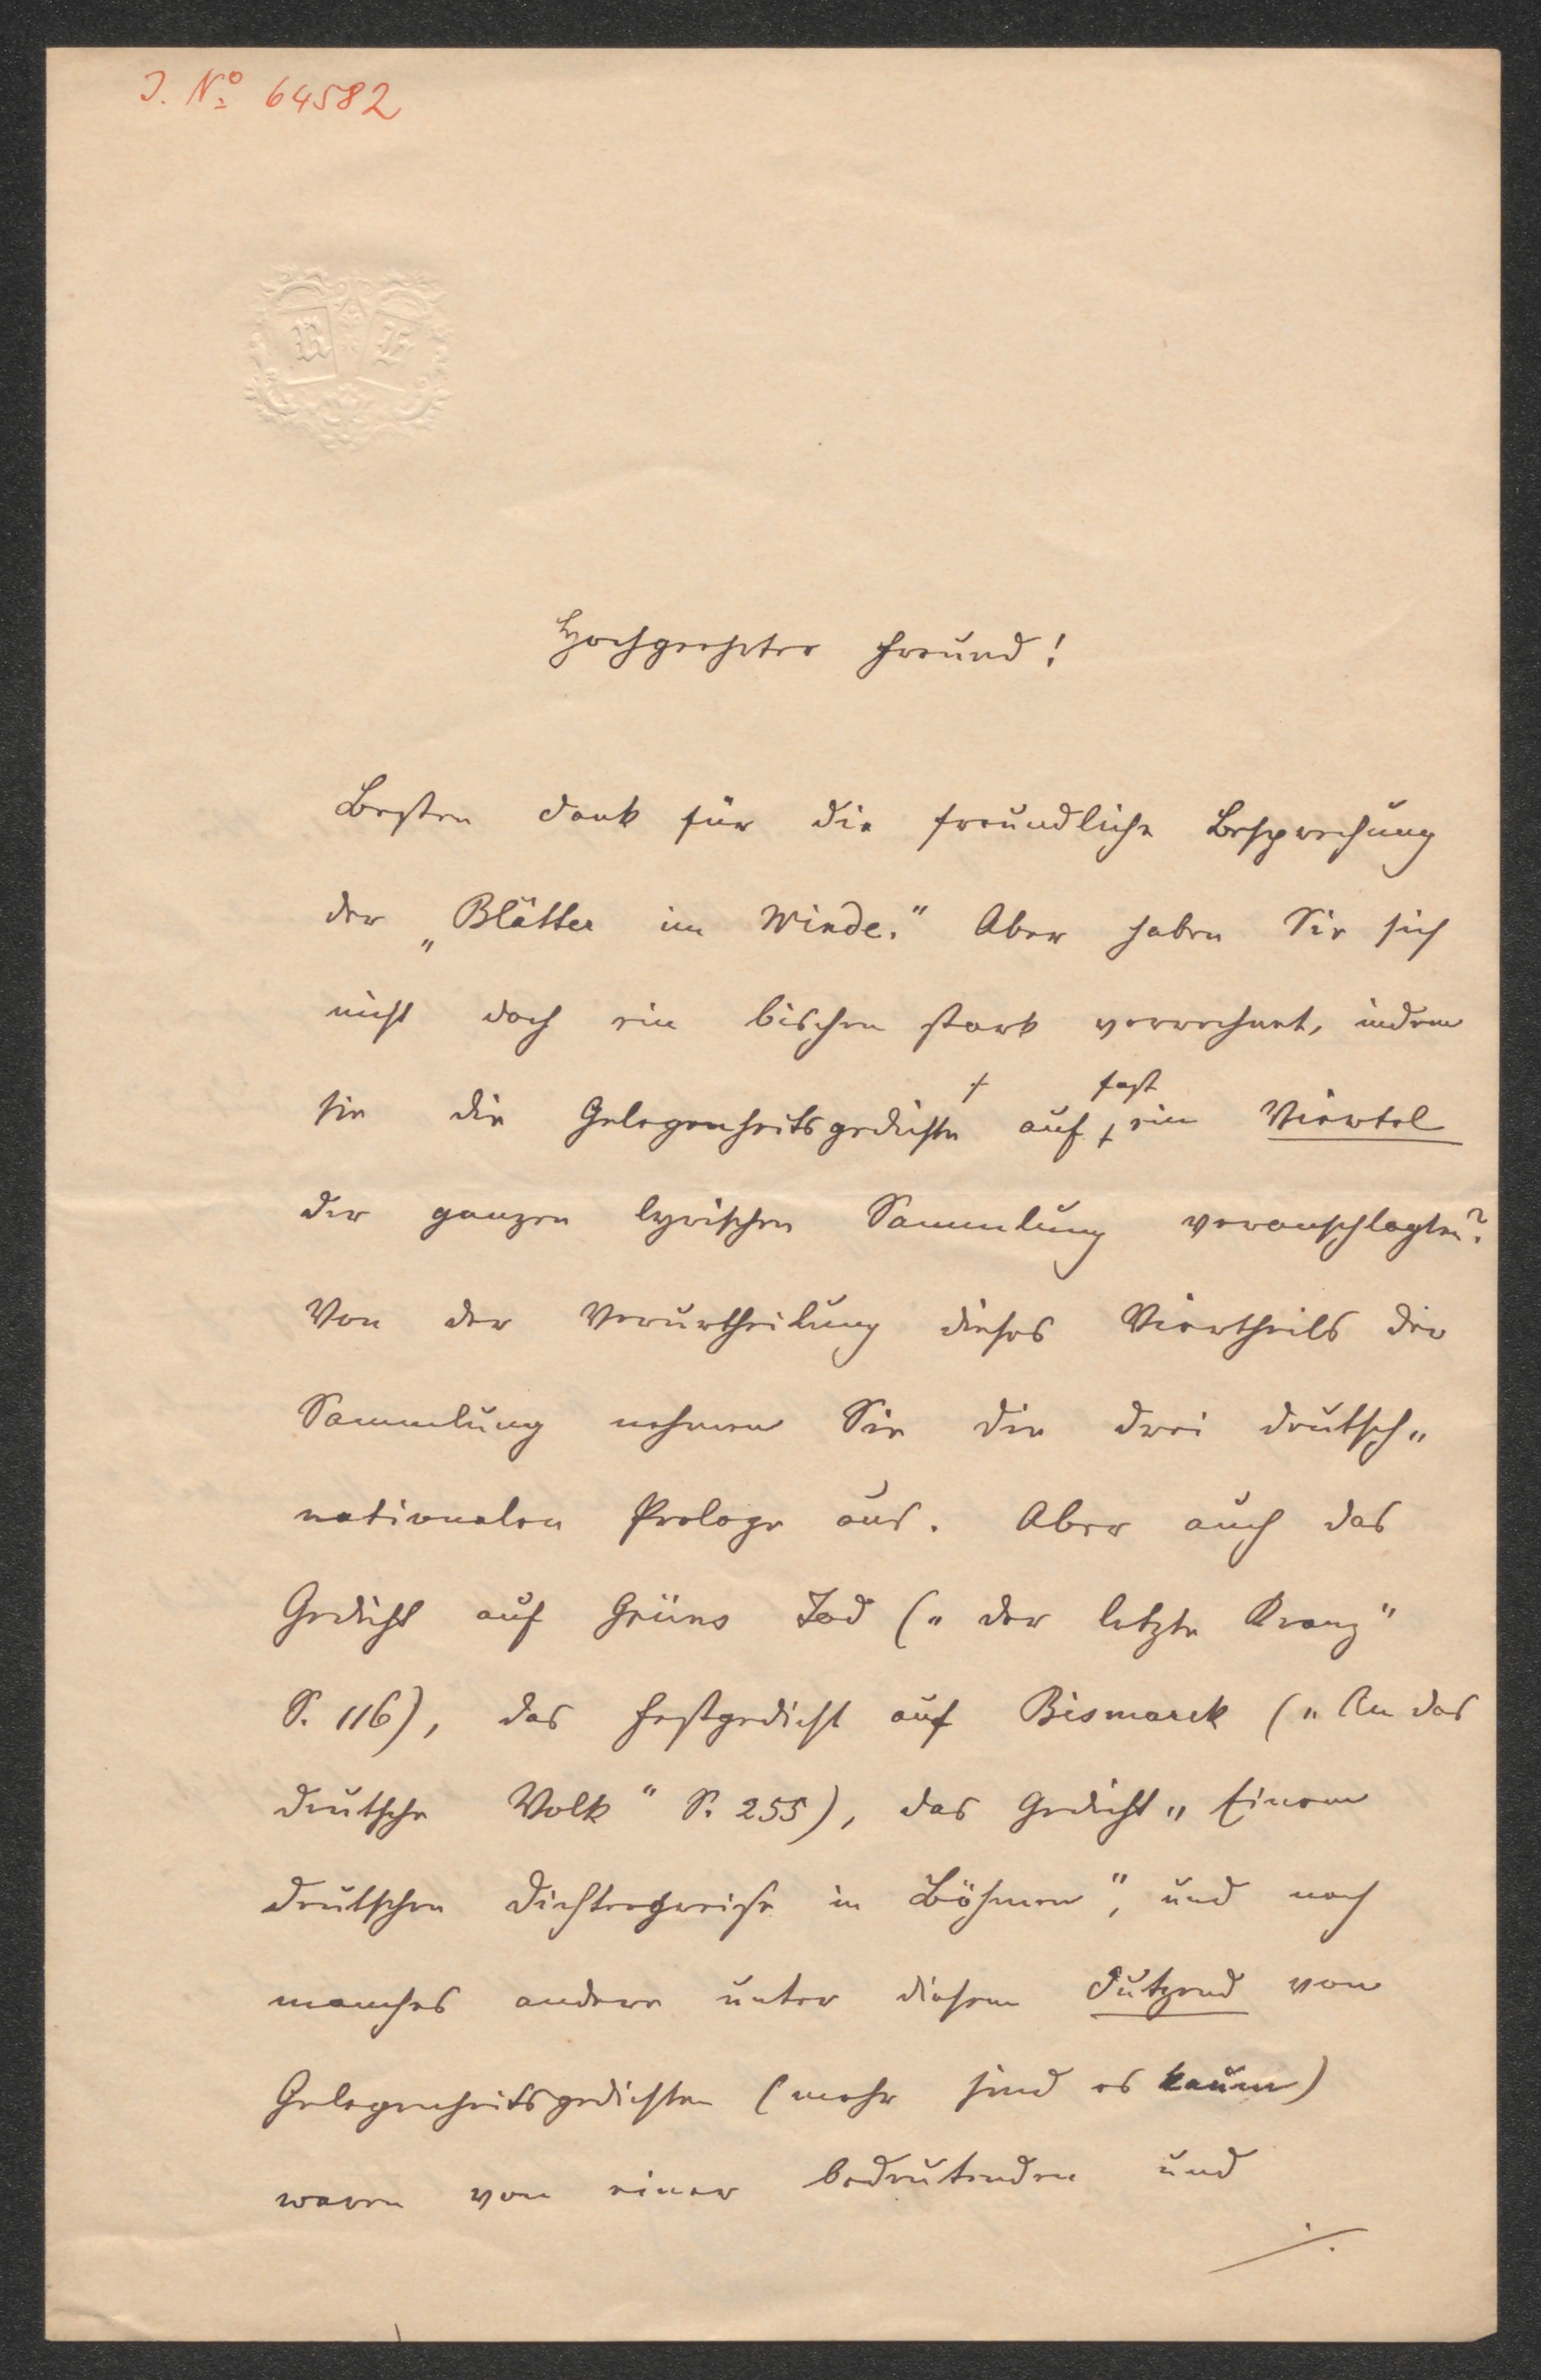 J. No 64582
Hochgeehrter Freund!
Besten Dank für die freundliche Besprechung
der „Blätter im Winde." Aber haben Sie sich
nicht doch ein bischen stark verrechnet, indem
sie die Gelegenheitsgedichte auf fast ein Viertel
der ganzen lyrischen Sammlung veranschlagten?
Von der Verurtheilung dieses Viertheils der
Sammlung nehmen Sie die drei deutsch„
nationalen Prologe aus. Aber auch das
Gedicht auf Grüns Tod („der letzte Kranz"
S. 116), das Festgedicht auf Bismarck („An das
deutsche Volk" S. 255), das Gedicht „Einem
deutschen Dichtergreise in Böhmen", und noch
manches andere unter diesem Dutzend von
Gelegenheitsgedichten (mehr sind es kaum)
waren von einer bedeutenden und
./.